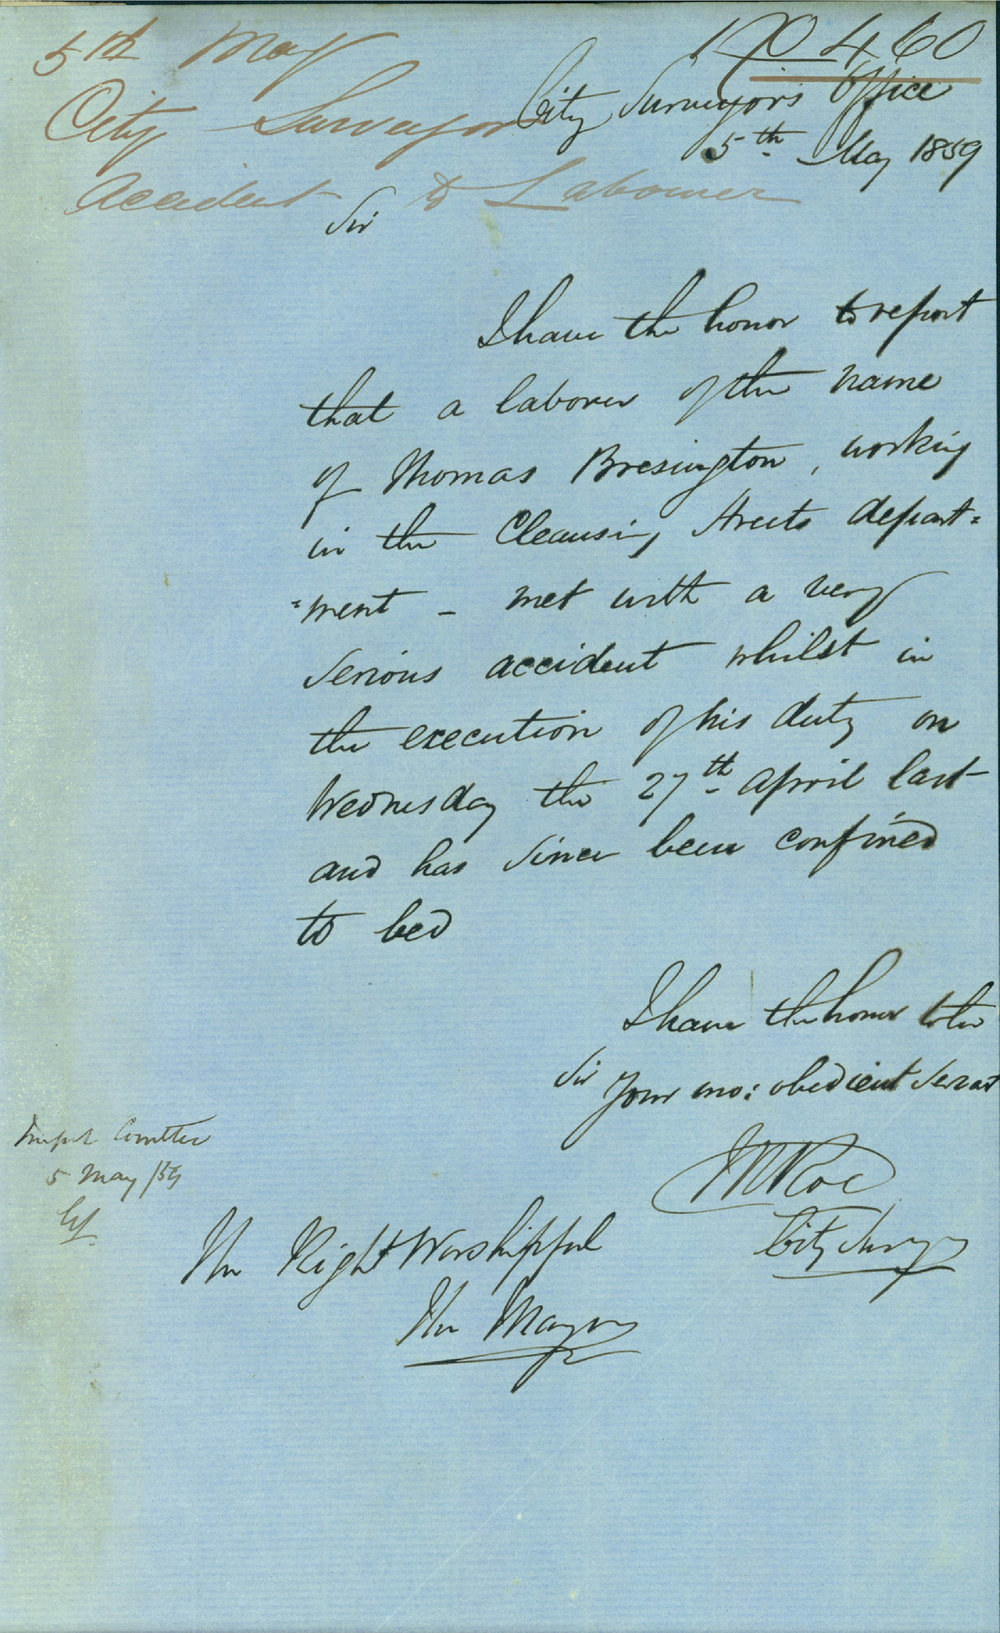 5th May
No 460
City Surveyor
Accident to Labourer
City Surveyor's Office
5th May 1859
Sir
I have the honor to report
that a laborer of the name
of Thomas Bresington, working
in the Cleansing Streets depart=
=ment - met with a very
serious accident whilst in
the execution of his duty on
Wednesday the 27th April last
and has since been confined
to bed
I have the honor to be
Sir Your mo: obedient Servant
City Surveyor
Improt Comttee
5 May /59
The Right Worshipful
The Mayor